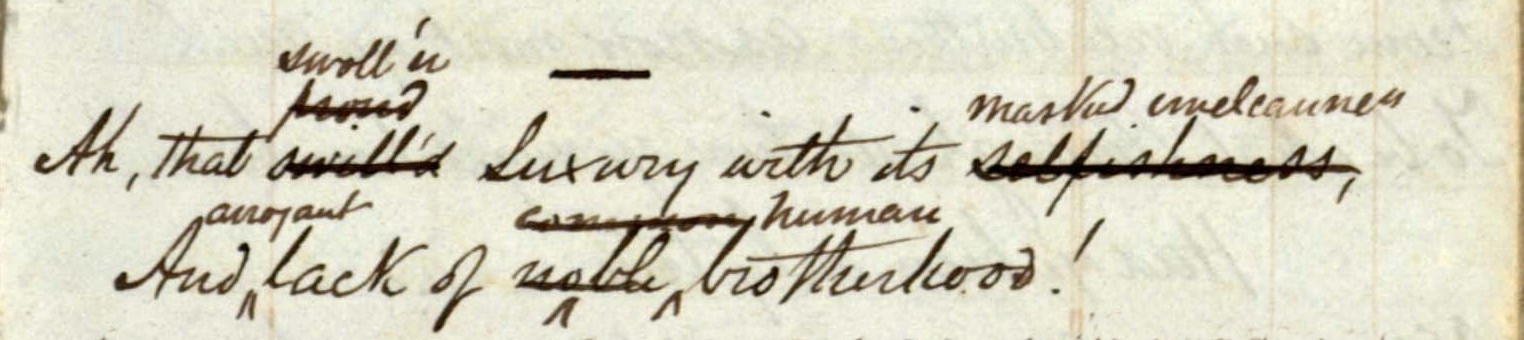 swoll'n
proud
masked uncleanness
Ah, that swill'd Luxury with its selfishness,
arrogant common human
And lack of noble brotherhood!